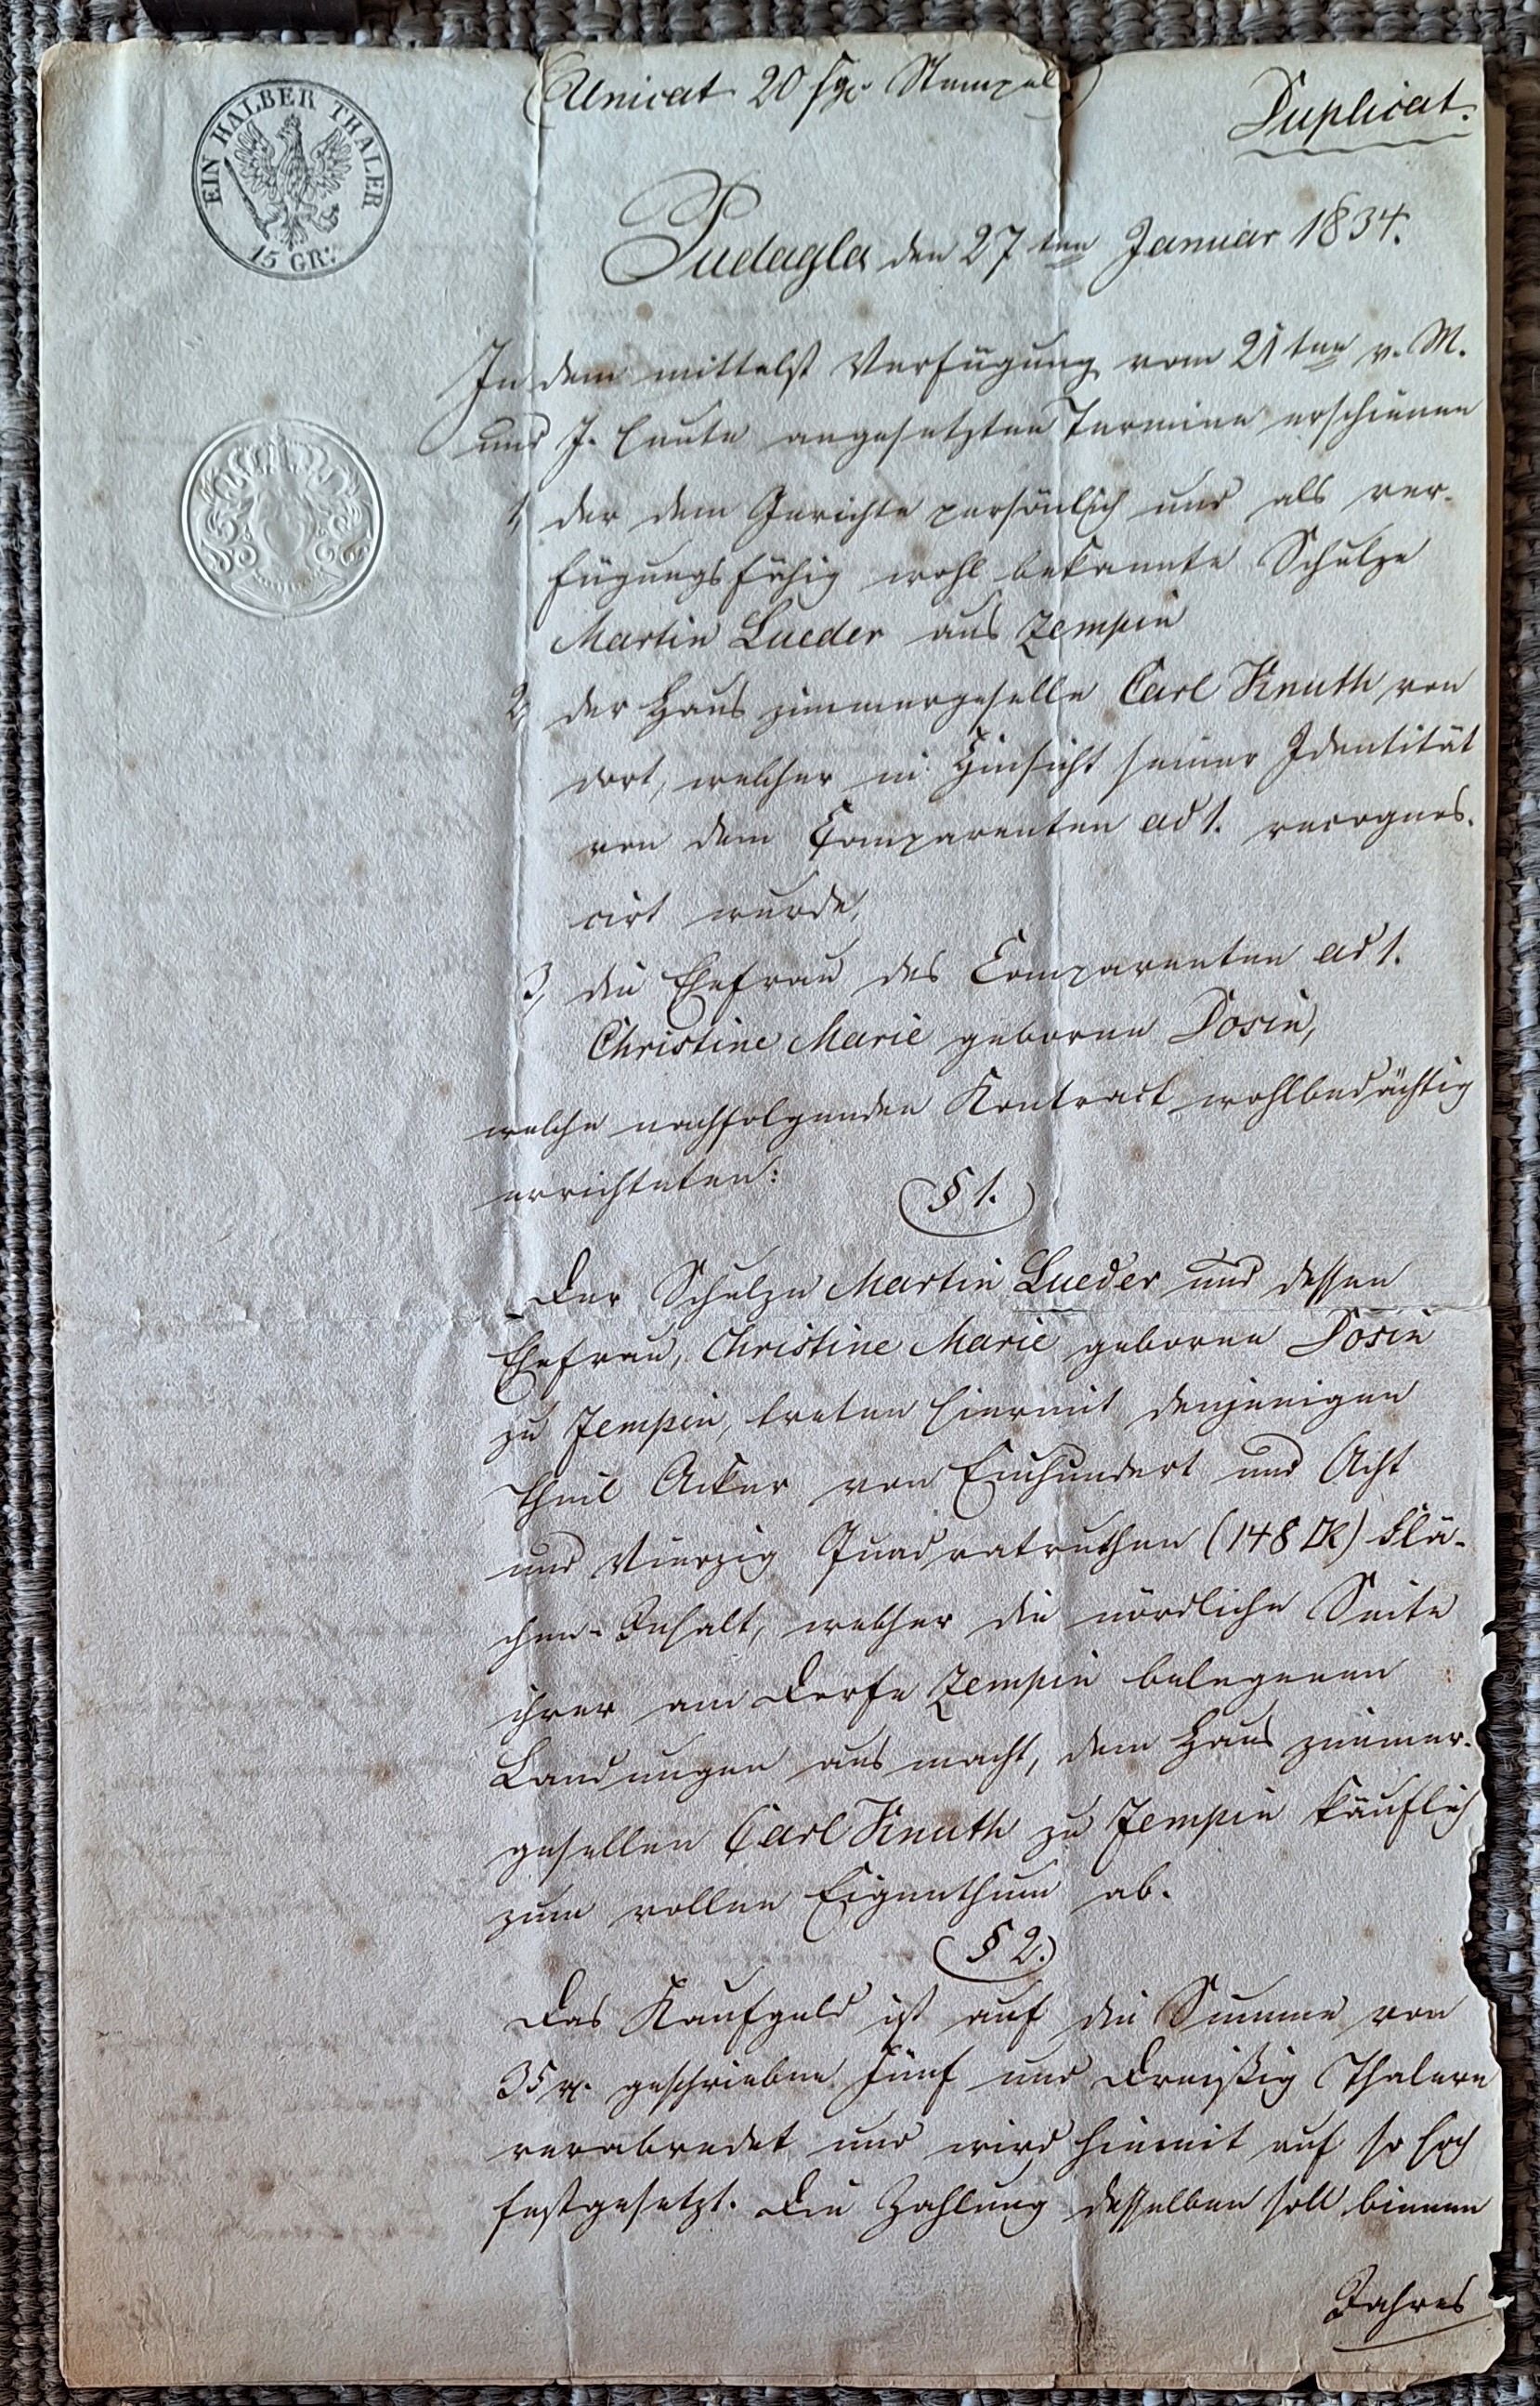 (Unicat 20 sgr. Stempel.)
Duplicat.
EIN HALBER THALER
15 GR:
Pudagla den 27ten Januar 1834.
In dem mittelst Verfügung vom 21ten v. M.
und J. heute angesetzten Termine erschienen
1, der dem Gerichte persönlich und als ver-
fügungsfähig wohl bekannte Schulze
Martin Lueder aus Zempin
2, der Haus zimmergeselle Carl Knuth von
dort, welcher in Hinsicht seiner Identität
von dem Comparenten ad 1. recognos-
cirt wurde,
3, die Ehefrau des Comparenten ad 1.
Christine Marie geborne Dosin,
welche nachfolgenden Kontract wohlbedächtig
errichteten:
§ 1.
Der Schulze Martin Lueder und dessen
Ehefrau, Christine Marie geborne Dosin
zu Zempin, treten hiermit denjenigen
Theil Acker von Einhundert und Acht
und Vierzig Quadratruthen (148 □R) Flä-
chen-Inhalt, welcher die nördliche Seite
ihrer am Dorfe Zempin belegenen
Landungen aus macht, dem Haus zimmer-
gesellen Carl Knuth zu Zempin käuflich
zum vollen Eigenthum ab.
§ 2.
Das Kaufgeld ist auf die Summe von
35 rt. geschrieben Fünf und Dreißig Thalern
verabredet und wird hiemit auf so hoch
festgesetzt. Die Zahlung desselben soll binnen
Jahres